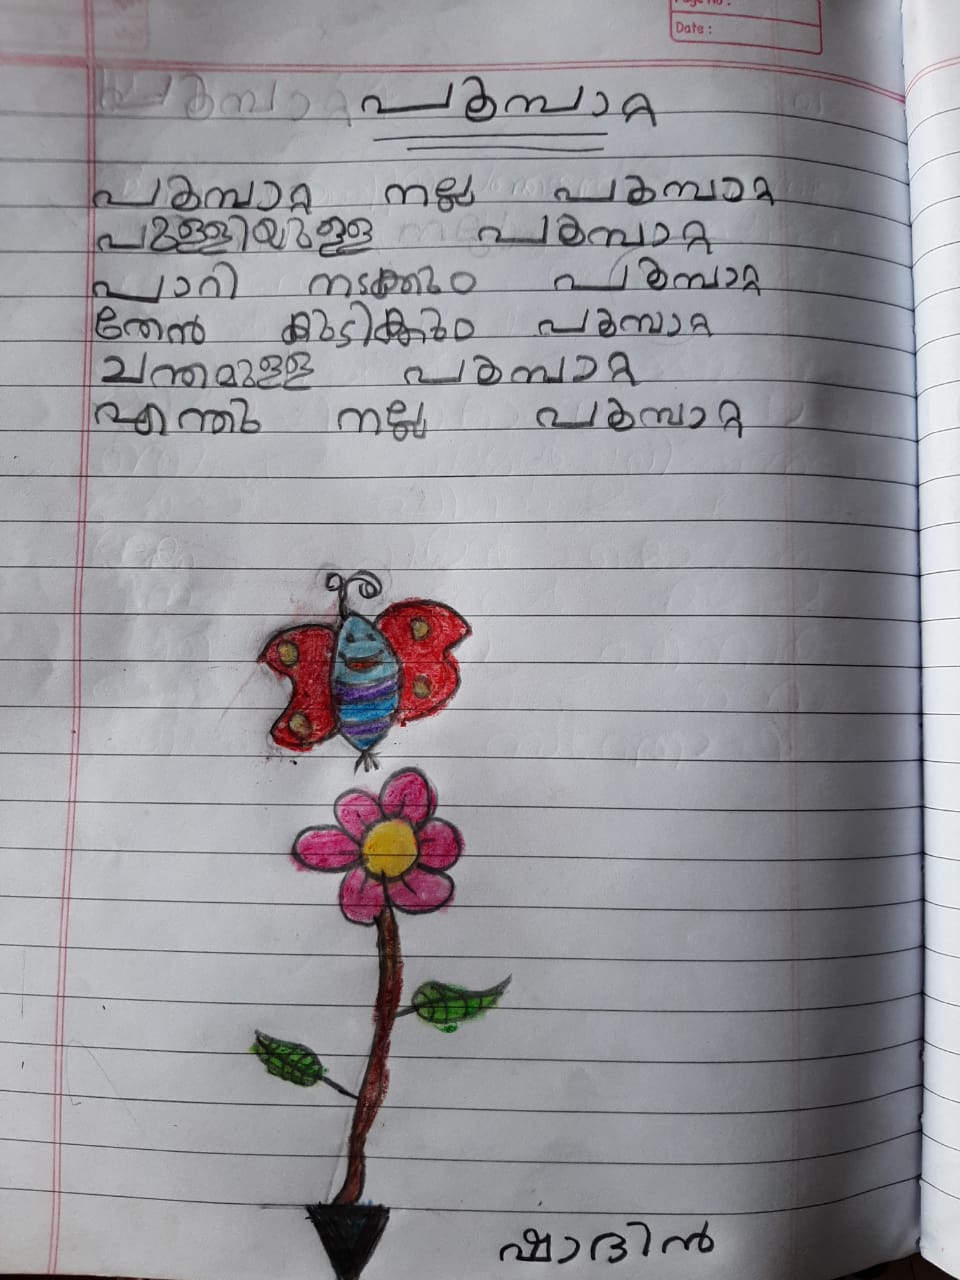 Page No :
Date :
പൂമ്പാറ്റ
പൂമ്പാറ്റ നല്ല പൂമ്പാറ്റ
പുള്ളിയുള്ള പൂമ്പാറ്റ
പാറി നടക്കും പൂമ്പാറ്റ
തേൻ കുടിക്കും പൂമ്പാറ്റ
ചന്തമുള്ള പൂമ്പാറ്റ
എന്തു നല്ല പൂമ്പാറ്റ
ഷാദിൻ